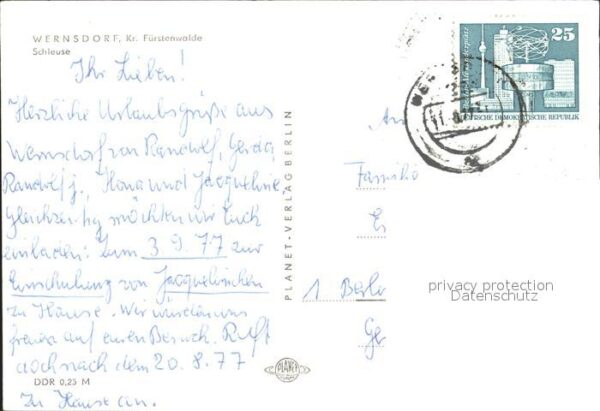 WERNSDORF, Kr. Fürstenwalde
Schleuse
Ihr Lieben!
Herzliche Urlaubsgrüße aus
Wernsdorf von Gerda,
j., Ilona und Jacqueline.
Gleichzeitig möchten wir Euch
einladen: Zum 3.9.77 zur
Einschulung von Jacquelinchen
zu Hause. Wir würden uns
freuen auf euren Besuch. Ruft
doch nach dem 20.8.77
zu Hause an.
DDR 0,25 M
PLANET-VERLAG BERLIN
PLANET
25
DEUTSCHE DEMOKRATISCHE REPUBLIK
11.8.
An
Familie
1 Berlin
privacy protection
Datenschutz